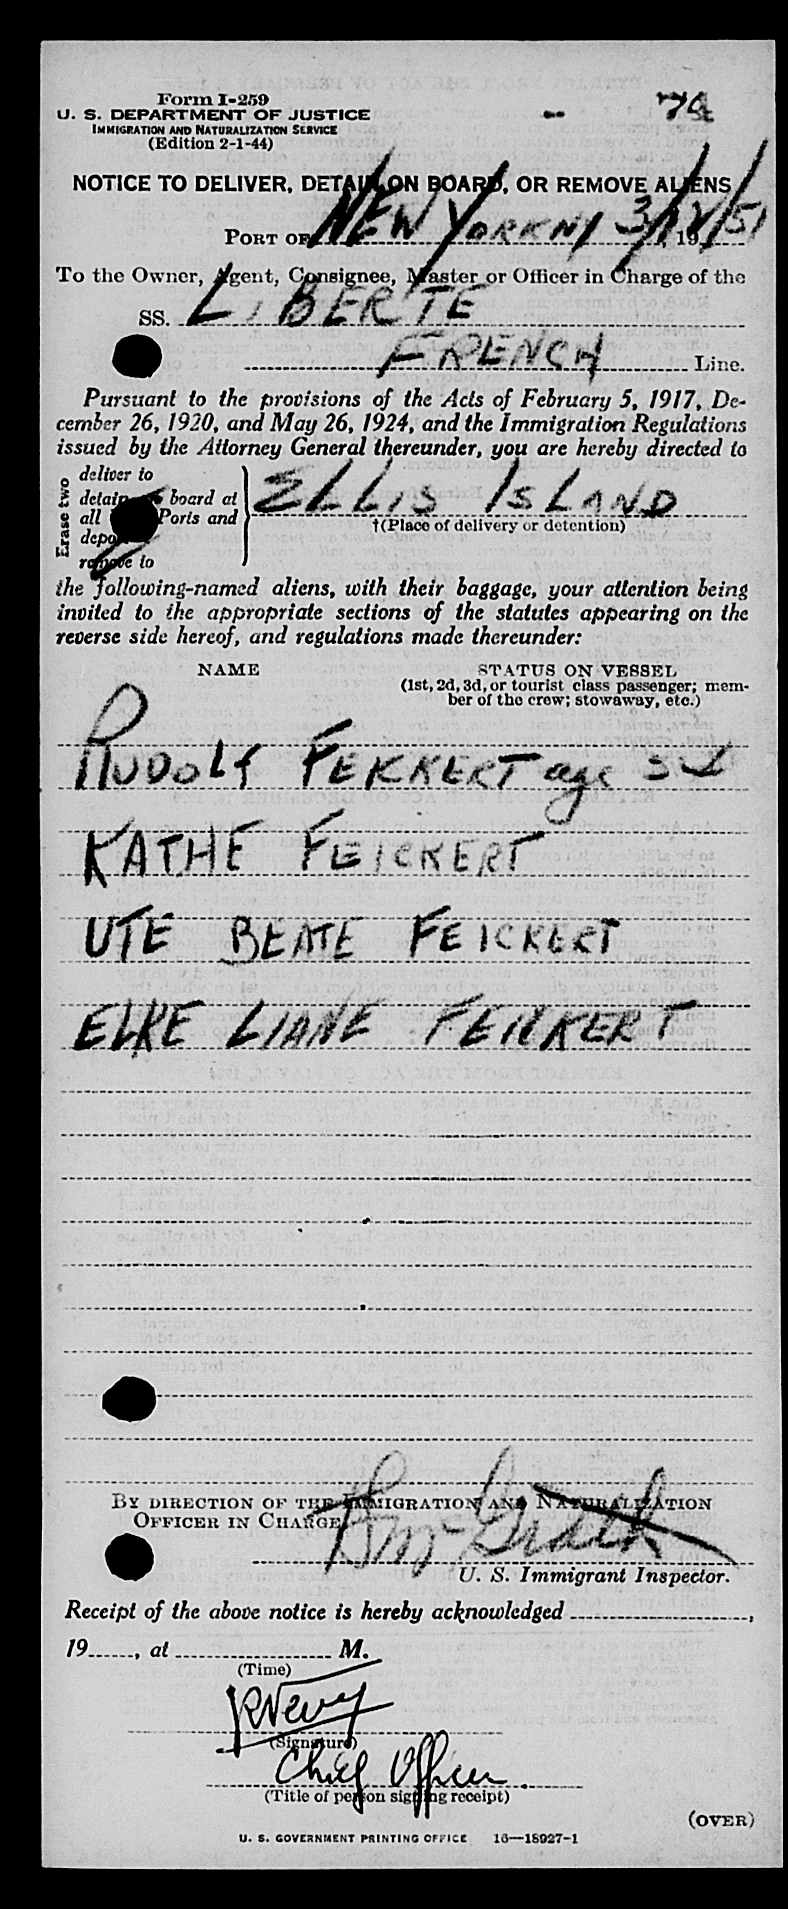 Form I-259
U. S. DEPARTMENT OF JUSTICE
IMMIGRATION AND NATURALIZATION SERVICE
(Edition 2-1-44)
NOTICE TO DELIVER, DETAIN ON BOARD, OR REMOVE ALIENS
PORT OF NEW YORK NY 3/ 19 51
To the Owner, Agent, Consignee, Master or Officer in Charge of the
SS. LIBERTE
FRENCH Line.
Pursuant to the provisions of the Acts of February 5, 1917, De-
cember 26, 1920, and May 26, 1924, and the Immigration Regulations
issued by the Attorney General thereunder, you are hereby directed to
Erase two
deliver to
detain board at
all Ports and
remove to
ELLIS ISLAND
†(Place of delivery or detention)
the following-named aliens, with their baggage, your attention being
invited to the appropriate sections of the statutes appearing on the
reverse side hereof, and regulations made thereunder:
NAME STATUS ON VESSEL
(1st, 2d, 3d, or tourist class passenger; mem-
ber of the crew; stowaway, etc.)
RUDOLF FEICKERT age
KATHE FEICKERT
UTE BEATE FEICKERT
ELKE LIANE FEICKERT
BY DIRECTION OF THE IMMIGRATION AND NATURALIZATION
OFFICER IN CHARGE,
McGrath
U. S. Immigrant Inspector.
Receipt of the above notice is hereby acknowledged ,
19 , at M.
(Time)
(Signature)
Chief Officer
(Title of person signing receipt)
(OVER)
U. S. GOVERNMENT PRINTING OFFICE 16—18927-1